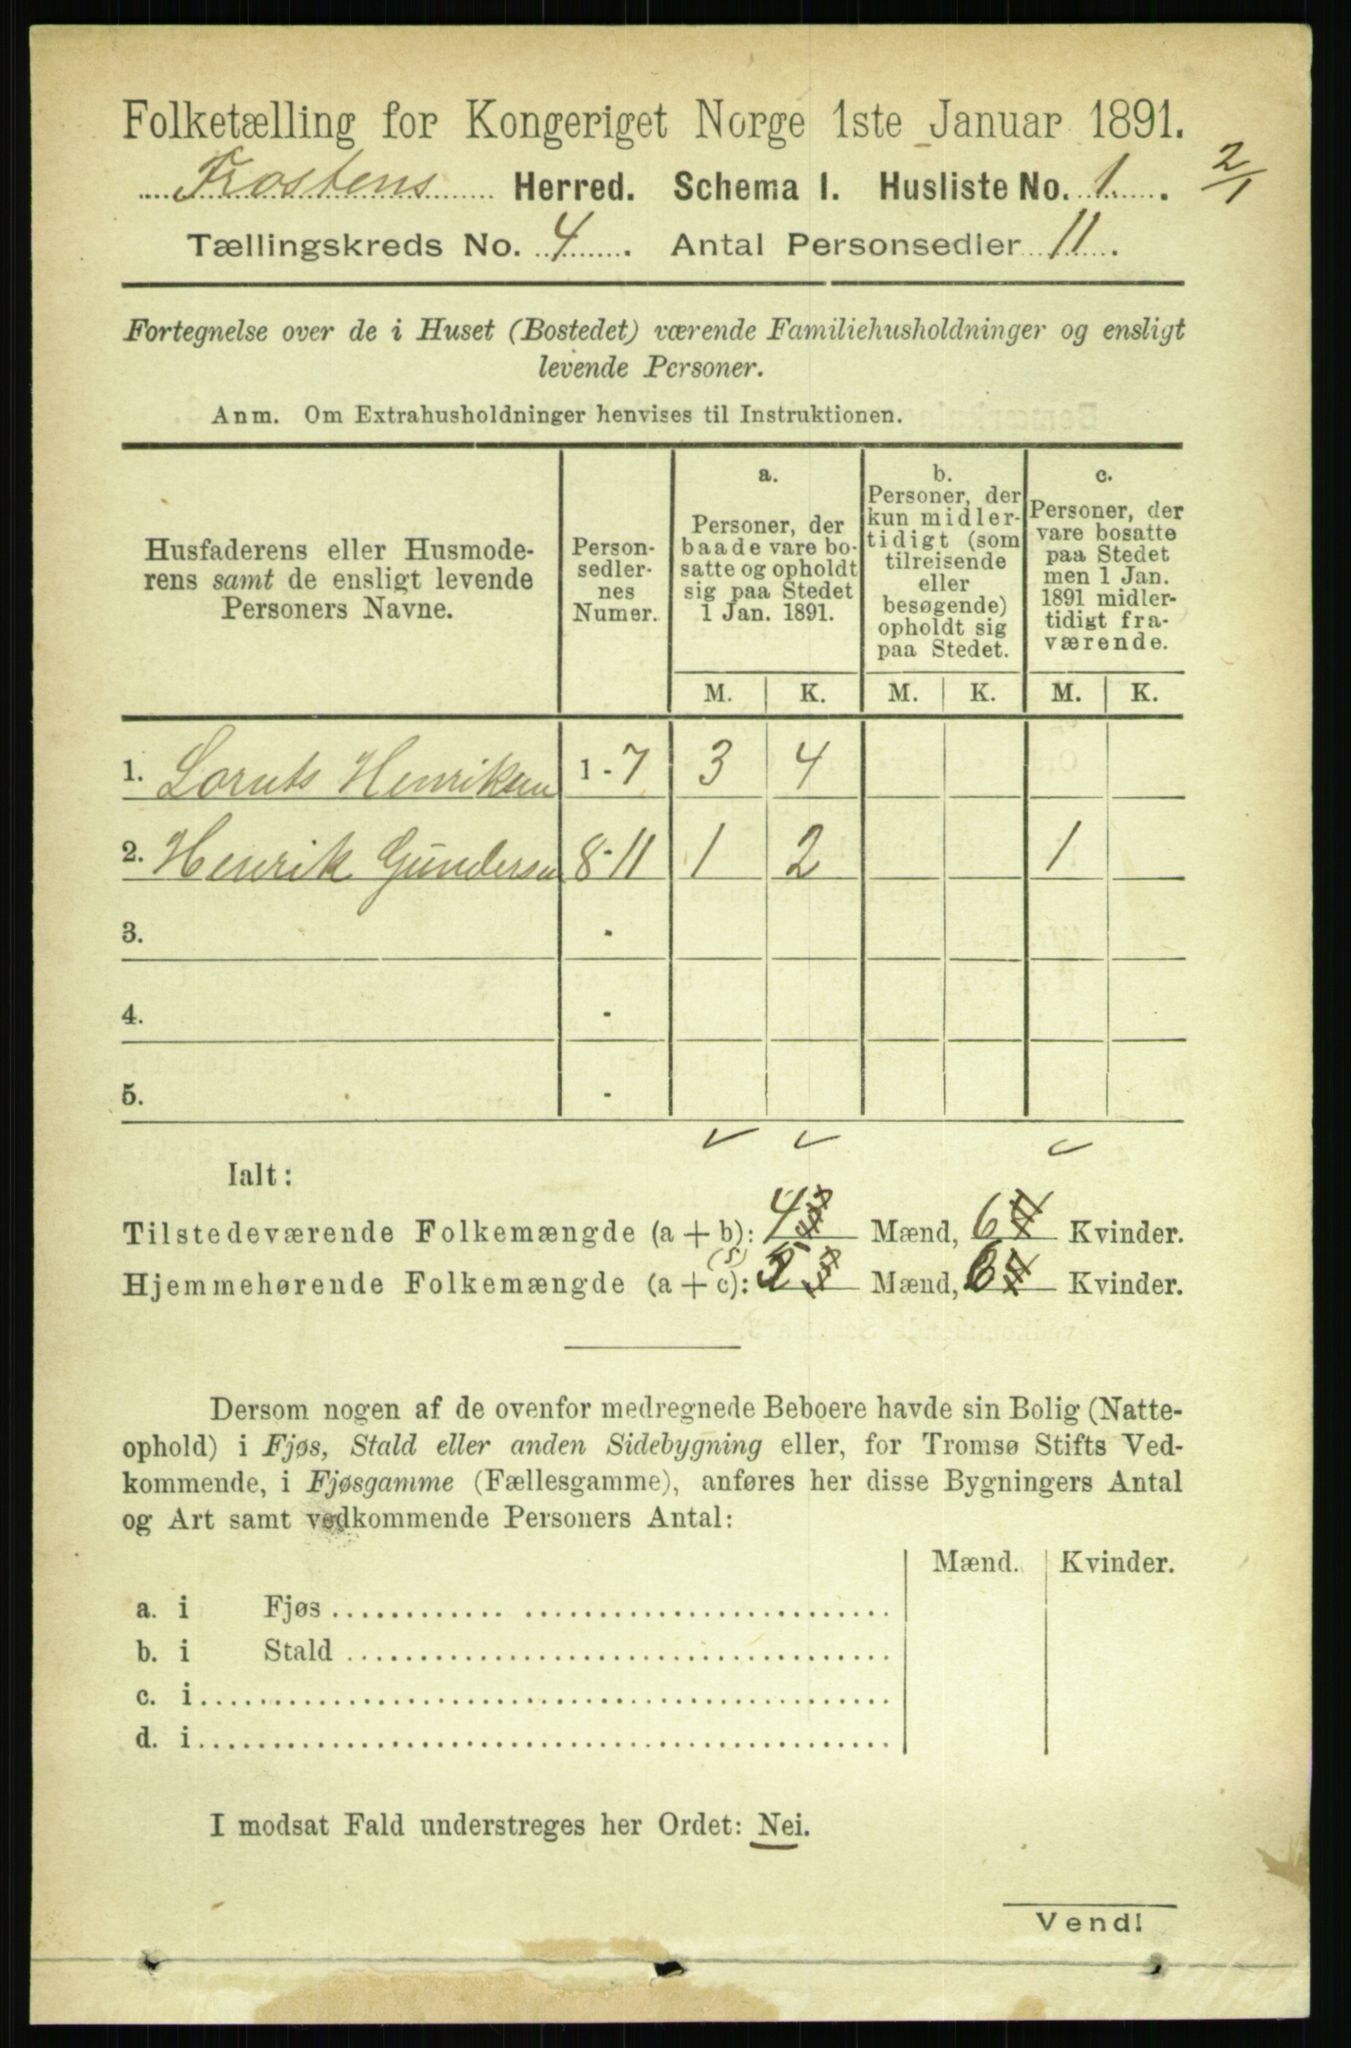 Folketælling for Kongeriget Norge 1ste Januar 1891.
Frostens Herred. Schema I. Husliste No. 1. 2/1
Tællingskreds No. 4. Antal Personsedler 11.
Fortegnelse over de i Huset (Bostedet) værende Familiehusholdninger og ensligt
levende Personer.
Anm. Om Extrahusholdninger henvises til Instruktionen.
Husfaderens eller Husmode-
rens samt de ensligt levende
Personers Navne.
Person-
sedler-
nes
Numer.
a.
Personer, der
baade vare bo-
satte og opholdt
sig paa Stedet
1 Jan. 1891.
b.
Personer, der
kun midler-
tidigt (som
tilreisende
eller
besøgende)
opholdt sig
paa Stedet.
c.
Personer, der
vare bosatte
paa Stedet
men 1 Jan.
1891 midler-
tidigt fra-
værende.
M. K. M. K. M. K.
1. Loruts Henriksen 1-7 3 4
2. Henrik Gundersen 8-11 1 2 1
3. -
4. -
5. -
Ialt:
Tilstedeværende Folkemængde (a + b): 4 Mænd, 6 Kvinder.
(5)
Hjemmehørende Folkemængde (a + c): 5 Mænd, 6 Kvinder.
Dersom nogen af de ovenfor medregnede Beboere havde sin Bolig (Natte-
ophold) i Fjøs, Stald eller anden Sidebygning eller, for Tromsø Stifts Ved-
kommende, i Fjøsgamme (Fællesgamme), anføres her disse Bygningers Antal
og Art samt vedkommende Personers Antal:
Mænd. Kvinder.
a. i Fjøs
b. i Stald
c. i
d. i
I modsat Fald understreges her Ordet: Nei.
Vend!